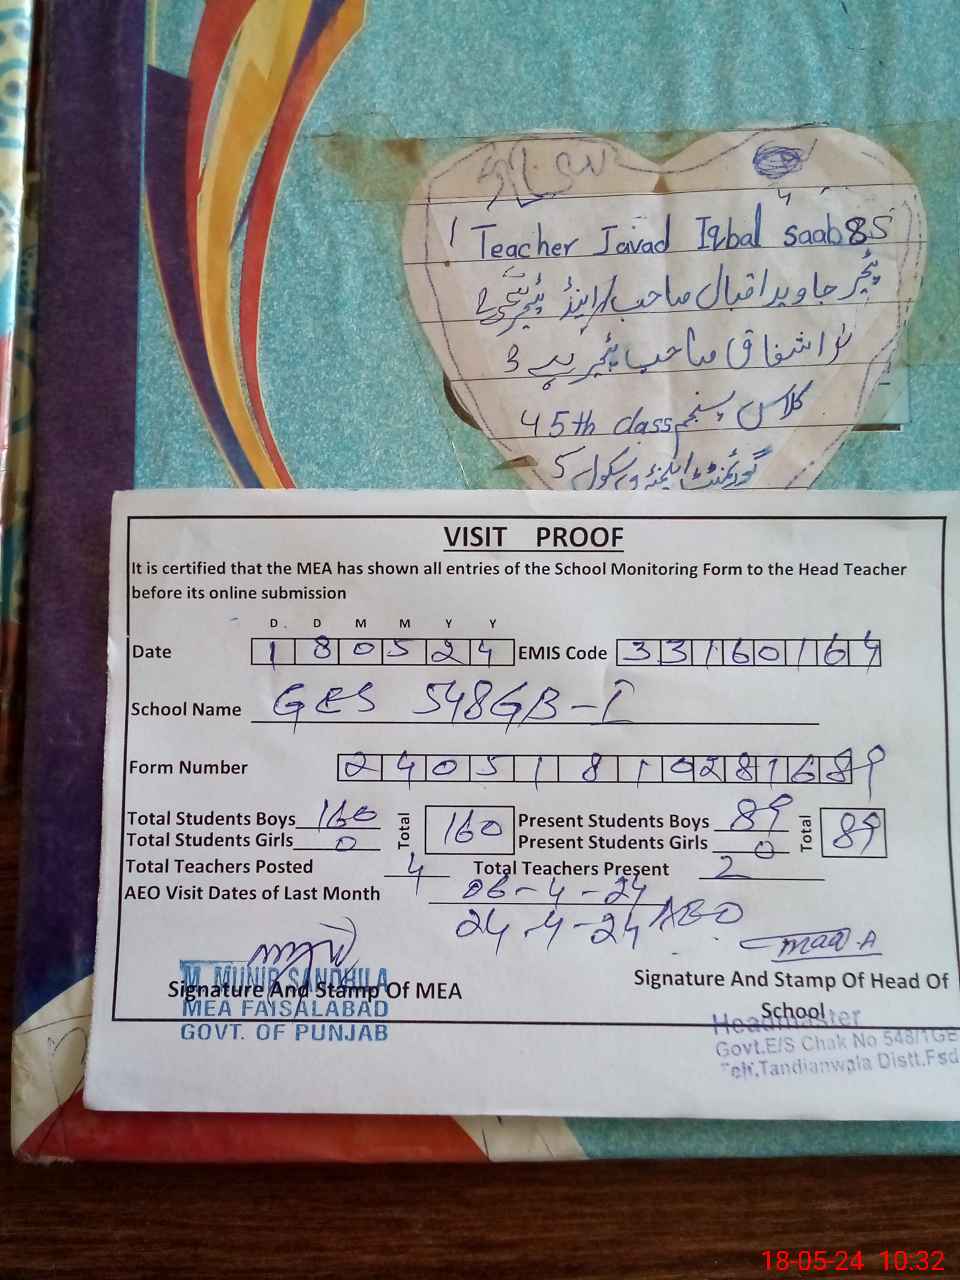 1 Teacher Javad Iqbal Saab 85
ٹیچر جاوید اقبال صاحب / اینڈ ٹیچر 2
اشفاق صاحب ٹیچر ہے 3
4 5th class کلاس پنجم
5 گورنمنٹ ایلیمنٹری سکول
VISIT PROOF
It is certified that the MEA has shown all entries of the School Monitoring Form to the Head Teacher
before its online submission
D D M M Y Y
Date 180524 EMIS Code 33160164
School Name GES 548GB-I
Form Number 24051810281689
Total Students Boys 160 Total 160 Present Students Boys 89 Total 89
Total Students Girls 0 Present Students Girls 0
Total Teachers Posted 4 Total Teachers Present 2
AEO Visit Dates of Last Month 06-4-24
24-4-24 AEO
M. MUNIR SANDHILA
Signature And Stamp Of MEA
MEA FAISALABAD
GOVT. OF PUNJAB
Signature And Stamp Of Head Of
School
Headmaster
Govt.E/S Chak No 548/1GB
Teh,Tandianwala Distt.Fsd
18-05-24 10:32